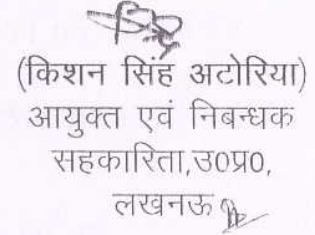 (किशन सिंह अटोरिया)
आयुक्त एवं निबन्धक
सहकारिता,उ0प्र0,
लखनऊ